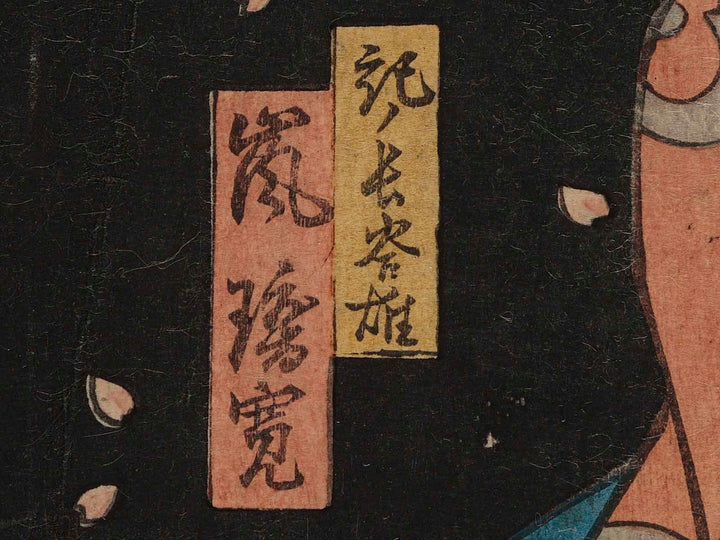 記ノ長谷雄
嵐璃寛